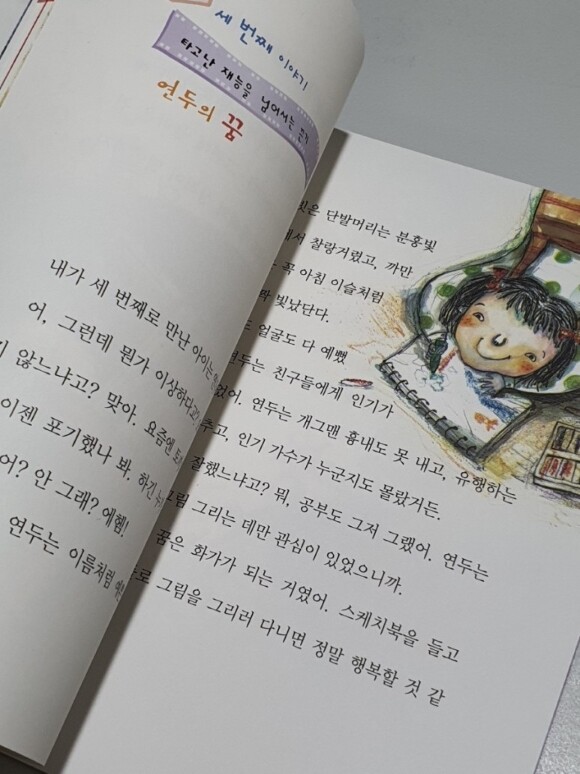 세 번째 이야기
타고난 재능을 넘어서는 끈기
연두의 꿈
내가 세 번째로 만난 아이는
어, 그런데 뭔가 이상하다고
않느냐고? 맞아. 요즘엔
이젠 포기했나 봐. 하긴
어? 안 그래? 에헴!
연두는 이름처럼
단발머리는 분홍빛
찰랑거렸고, 까만
꼭 아침 이슬처럼
빛났단다.
얼굴도 다 예뻤
연두는 친구들에게 인기가
었어. 연두는 개그맨 흉내도 못 내고, 유행하는
추고, 인기 가수가 누군지도 몰랐거든.
잘했느냐고? 뭐, 공부도 그저 그랬어. 연두는
그림 그리는 데만 관심이 있었으니까.
꿈은 화가가 되는 거였어. 스케치북을 들고
그림을 그리러 다니면 정말 행복할 것 같